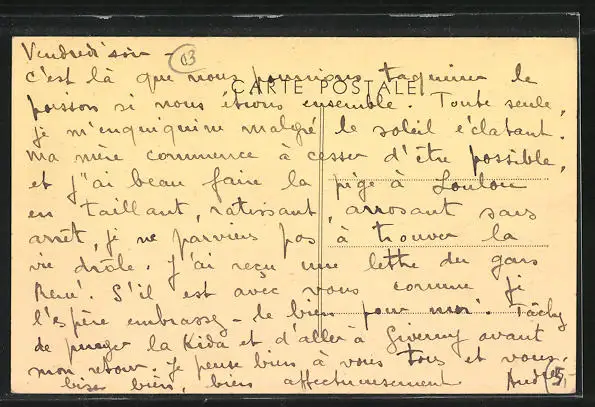 Vendredi soir - 03
c'est là que nous pourrions taquiner le
CARTE POSTALE
poisson si nous étions ensemble. Toute seule,
je m'enquiquine malgré le soleil éclatant.
Ma mère commence à cesser d'être possible,
et j'ai beau faire la pige à Loulou
en taillant, ratissant, arrosant sans
arrêt, je ne parviens pas à trouver la
vie drôle. J'ai reçu une lettre du gars
René. S'il est avec vous comme je
l'espère embrassez-le bien pour moi. Tâchez
de purger la Kida et d'aller à Giverny avant
mon retour. Je pense bien à vous tous et vous
bise bien, bien affectueusement
5,-